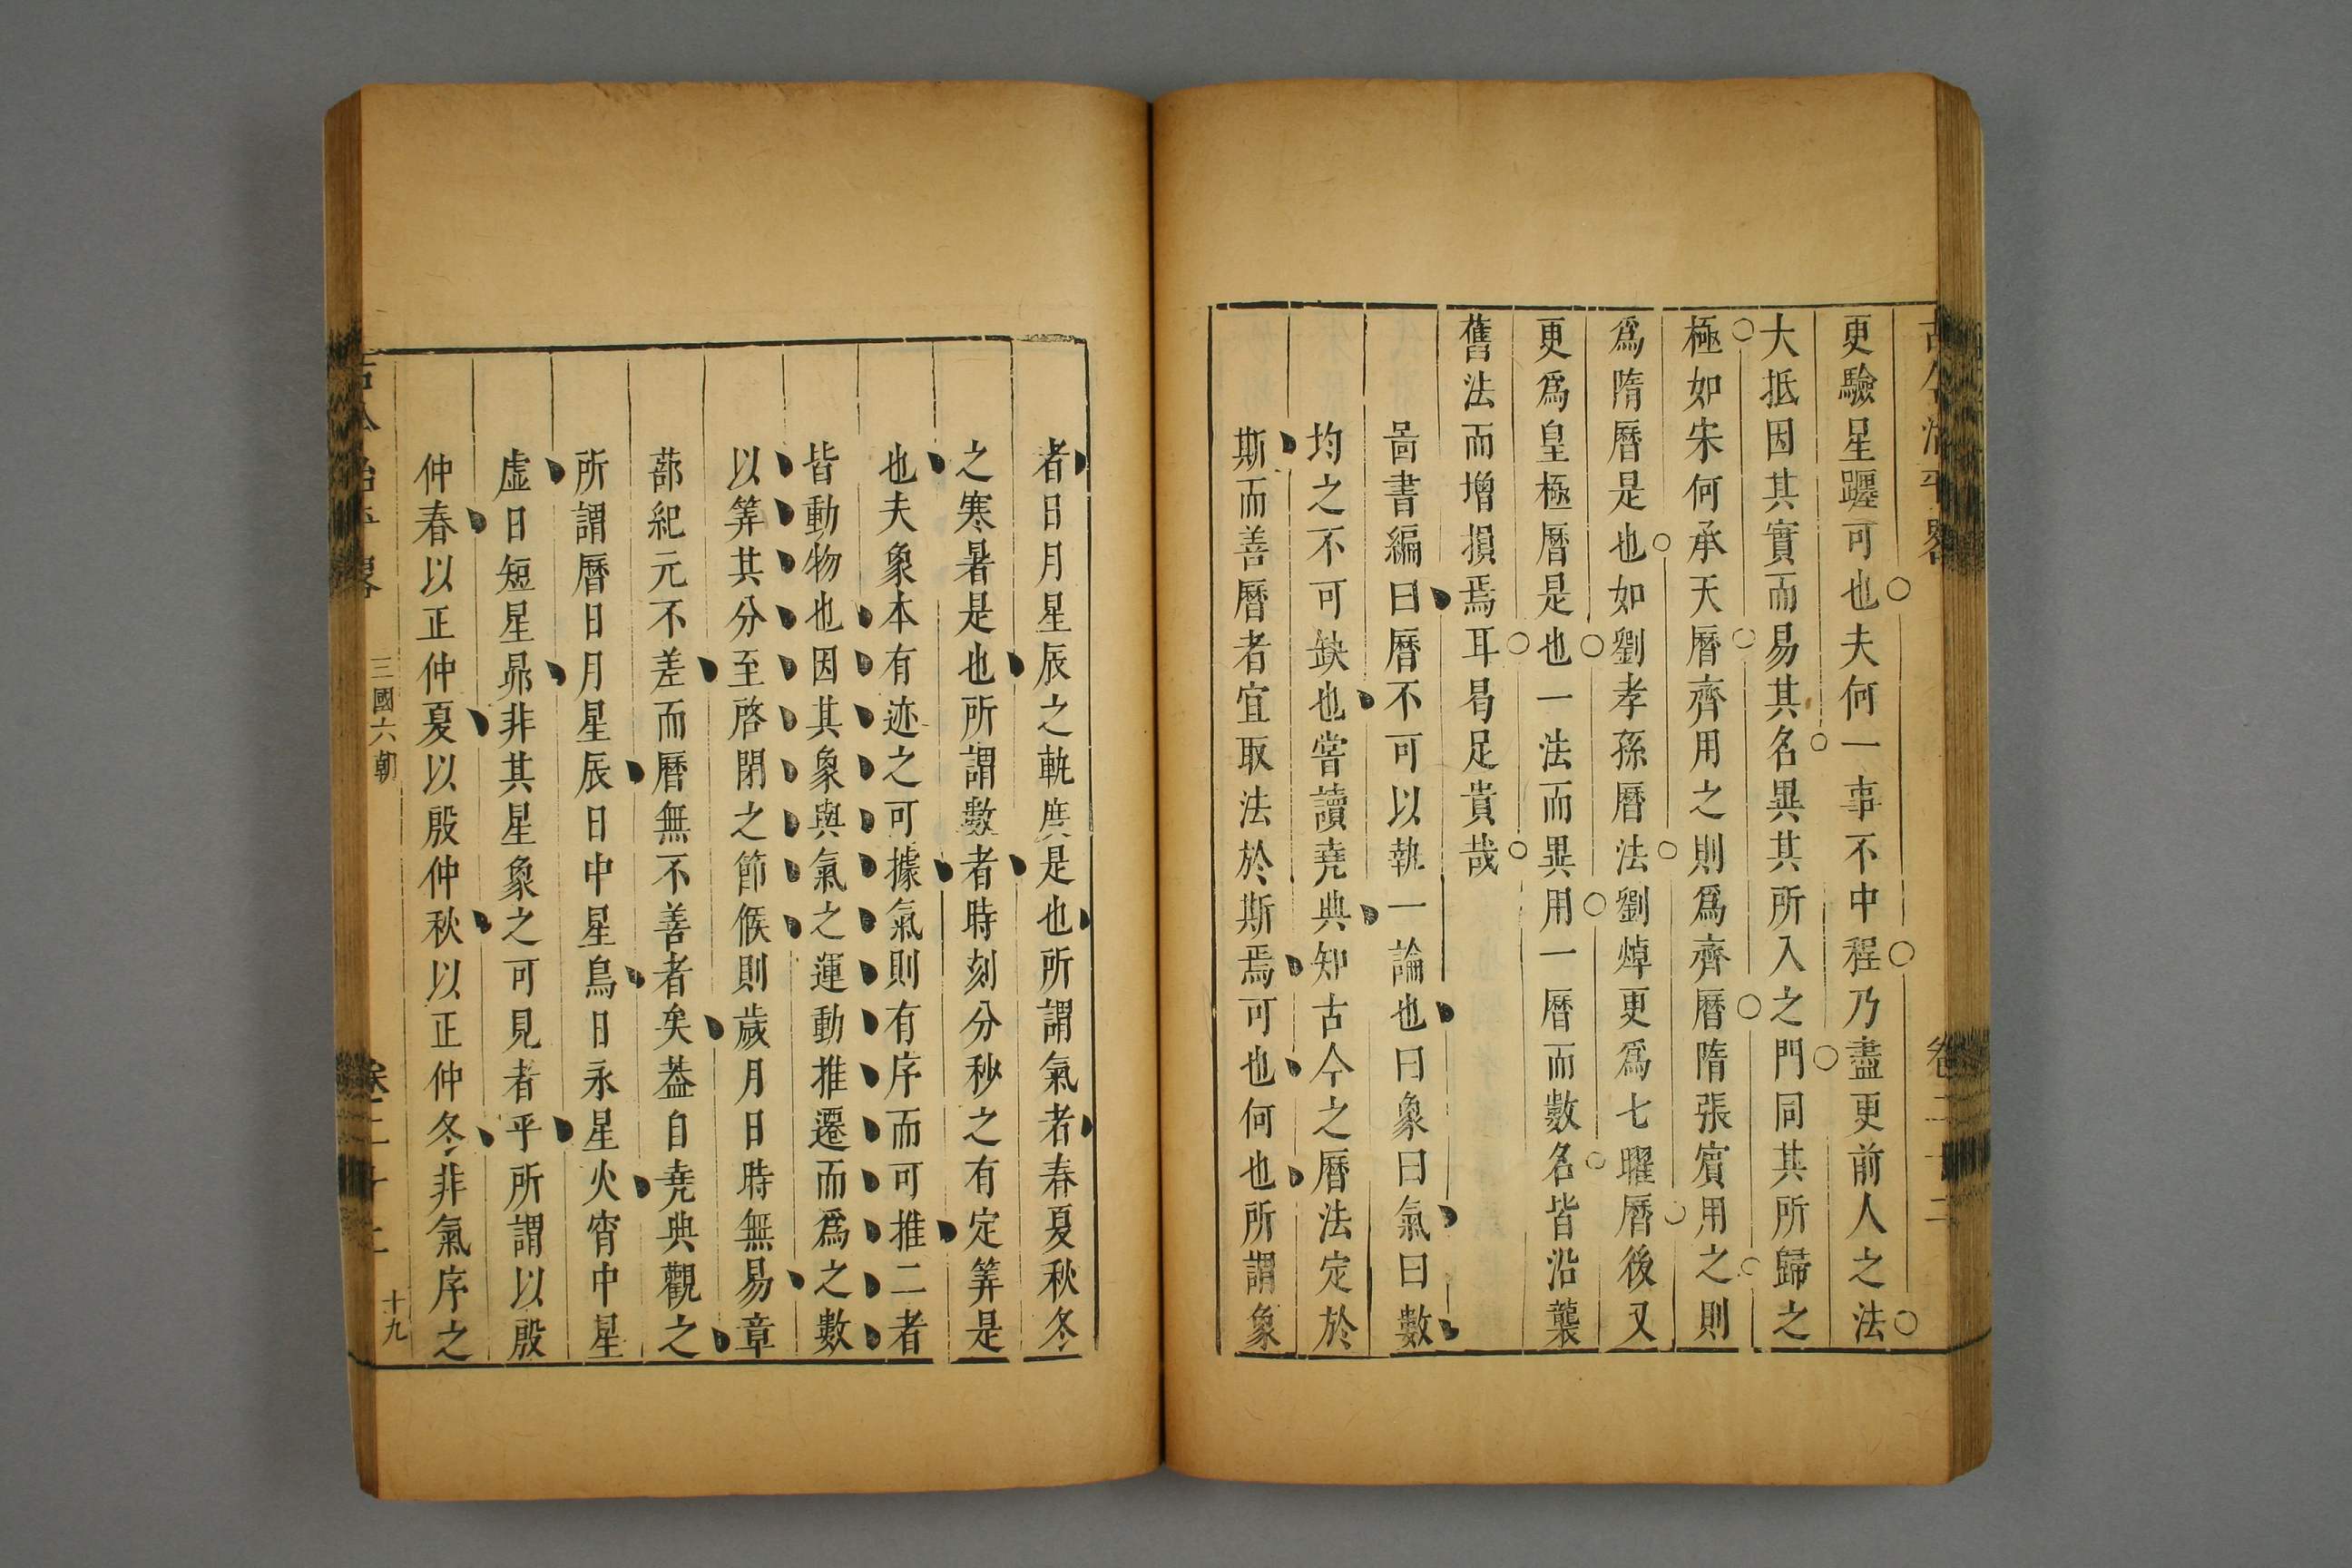 古今治平畧
卷二十二
更驗星躔可也夫何一事不中程乃盡更前人之法
大抵因其實而易其名異其所入之門同其所歸之
極如宋何承天曆齊用之則爲齊曆隋張賔用之則
爲隋曆是也如劉孝孫曆法劉焯更爲七曜曆後又
更爲皇極曆是也一法而異用一曆而數名皆沿襲
舊法而增損焉耳曷足貴哉
啚書編曰曆不可以執一論也曰象曰氣曰數
均之不可缺也甞讀堯典知古今之曆法定於
斯而善曆者宜取法於斯焉可也何也所謂象
者日月星辰之軌度是也所謂氣者春夏秋冬
之寒暑是也所謂數者時刻分秒之有定筭是
也夫象本有迹之可據氣則有序而可推二者
皆動物也因其象與氣之運動推遷而爲之數
以筭其分至啓閉之節候則歲月日時無易章
蔀紀元不差而曆無不善者矣葢自堯典觀之
所謂曆日月星辰日中星鳥日永星火宵中星
虛日短星昴非其星象之可見者乎所謂以殷
仲春以正仲夏以殷仲秋以正仲冬非氣序之
古今治平畧
三國六朝
卷二十二
十九